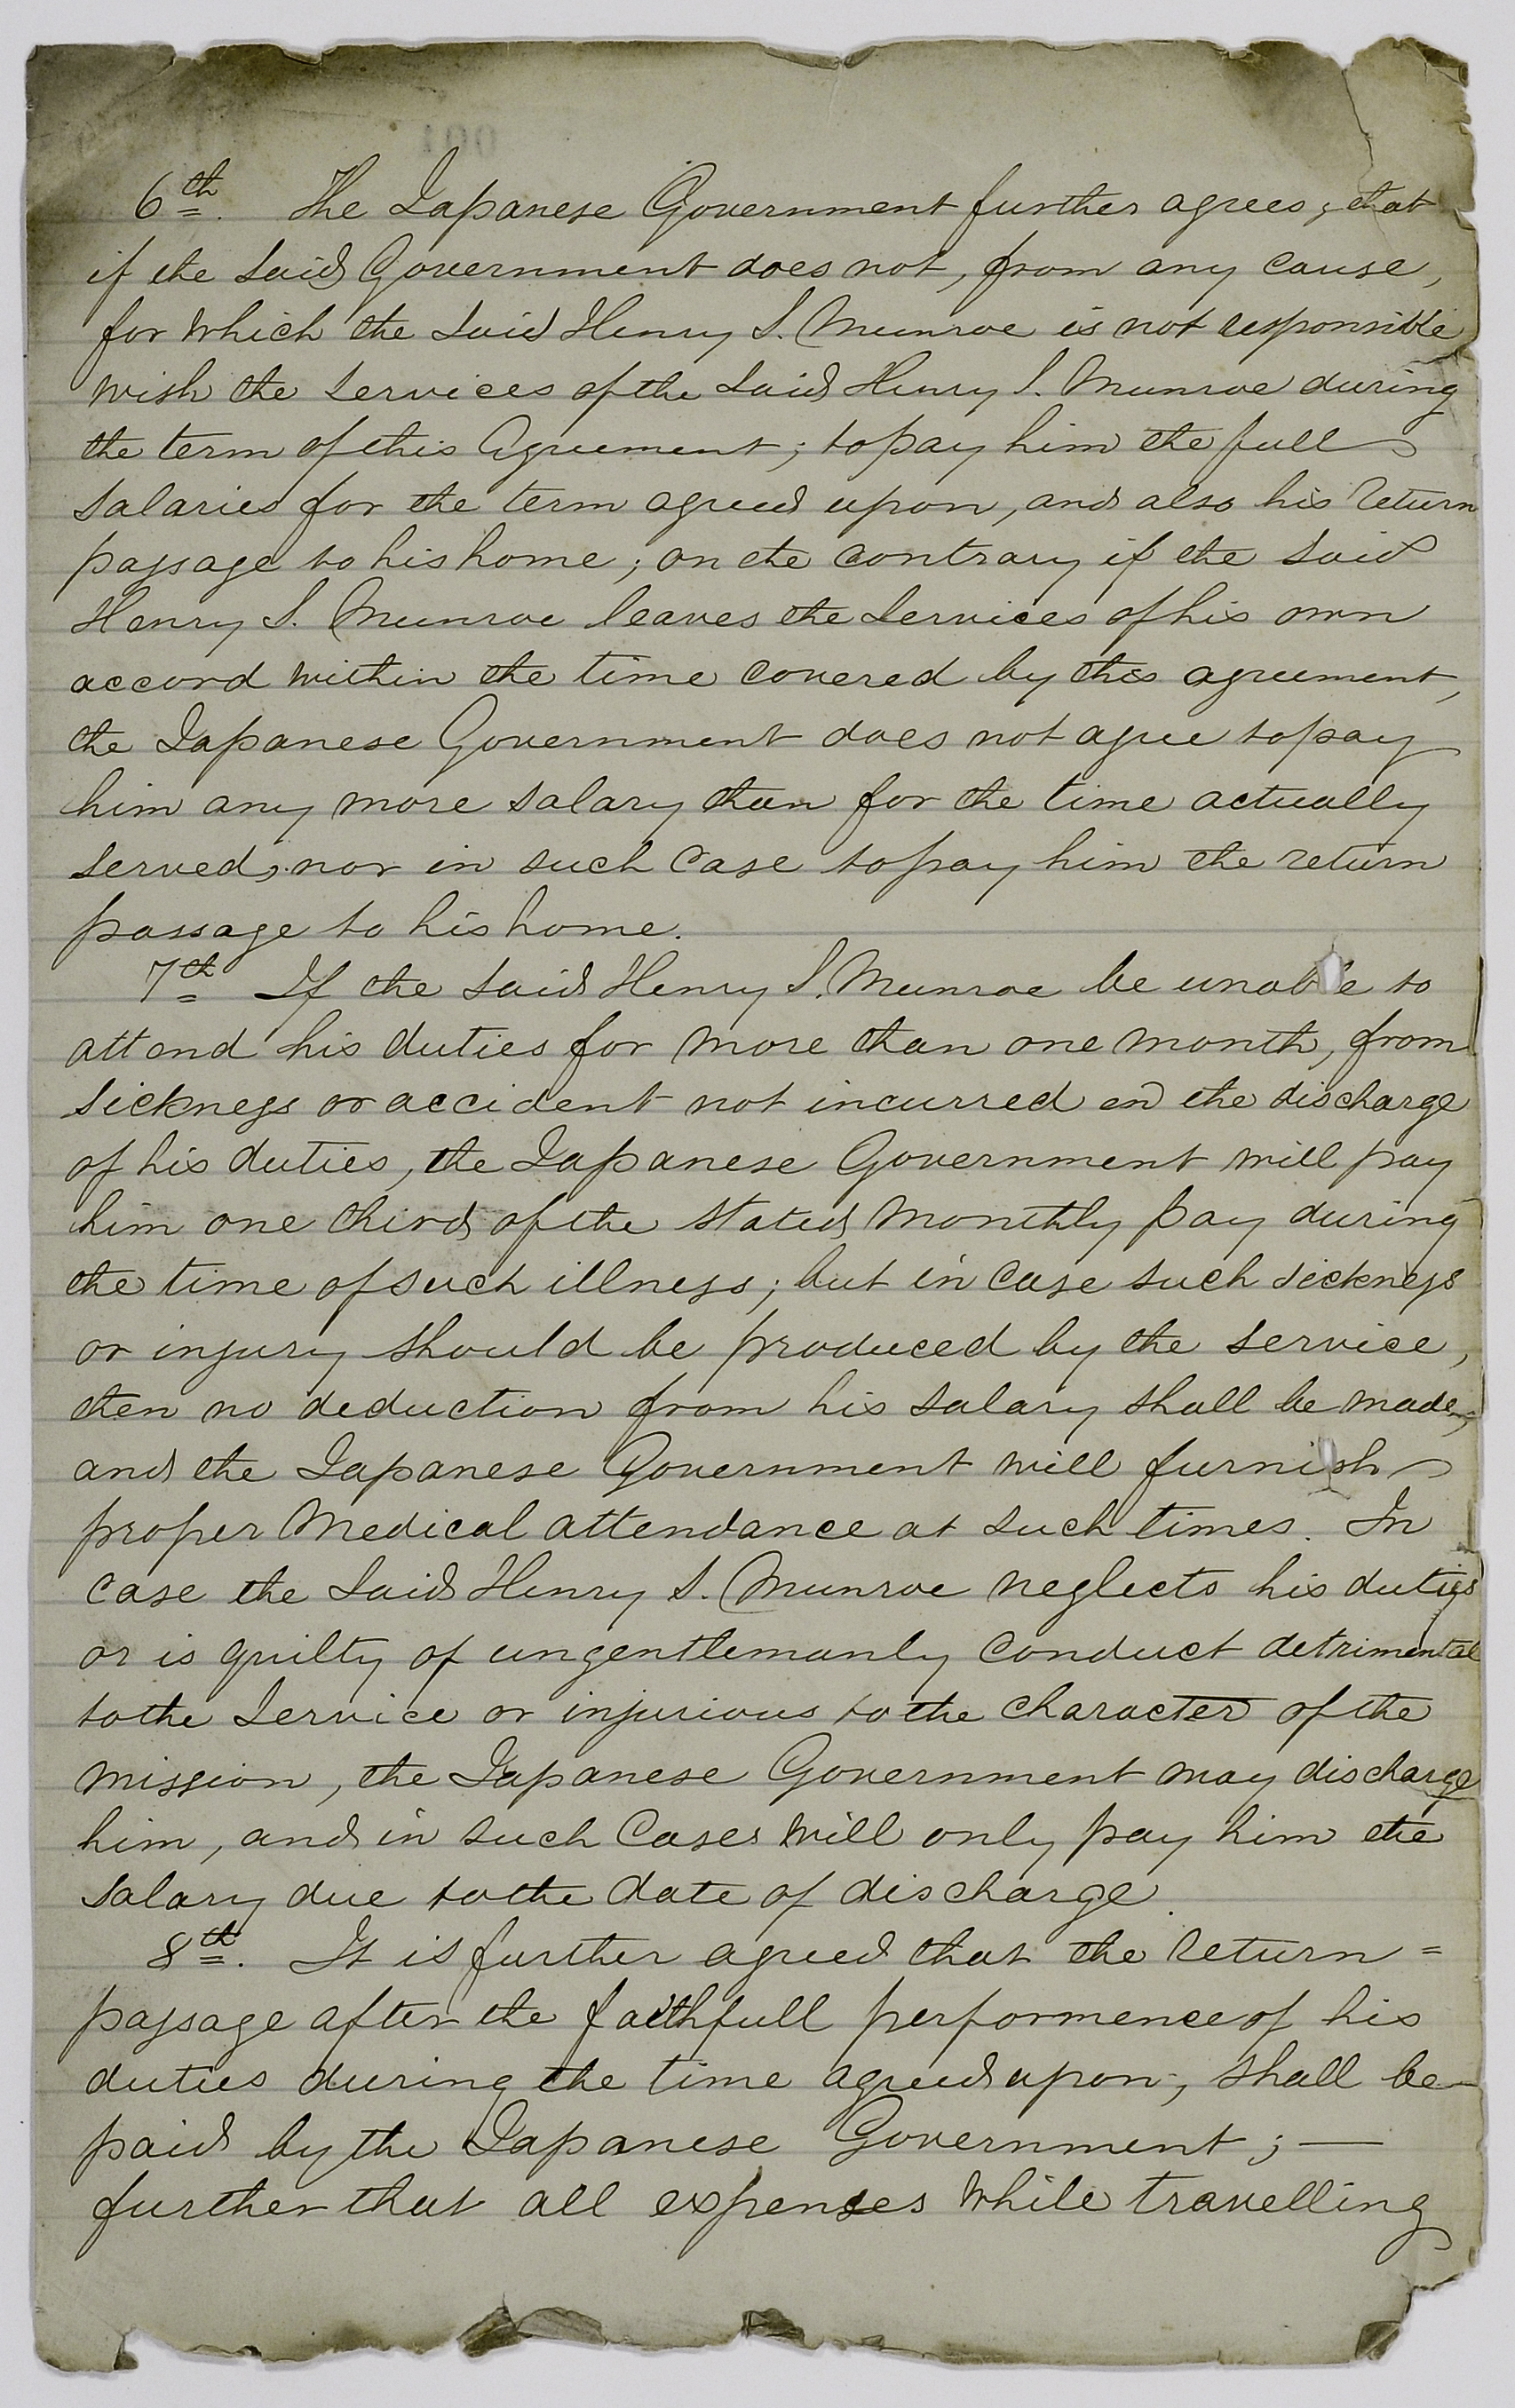 6th. The Japanese Government further agrees, that
if the said Government does not, from any cause,
for which the said Henry S. Munroe is not responsible
wish the services of the said Henry S. Munroe during
the term of this Agreement; to pay him the full
salaries for the term agreed upon, and also his return
passage to his home; on the contrary if the said
Henry S. Munroe leaves the services of his own
accord within the time covered by this agreement,
the Japanese Government does not agree to pay
him any more salary than for the time actually
served, nor in such case to pay him the return
passage to his home.
7th If the said Henry S. Munroe be unable to
attend his duties for more than one month, from
sickness or accident not incurred in the discharge
of his duties, the Japanese Government will pay
him one third of the stated monthly pay during
the time of such illness; but in case such sickness
or injury should be produced by the service,
then no deduction from his salary shall be made,
and the Japanese Government will furnish
proper Medical attendance at such times. In
case the said Henry S. Munroe neglects his duties
or is guilty of ungentlemanly conduct detrimental
to the service or injurious to the character of the
mission, the Japanese Government may discharge
him, and in such cases will only pay him the
salary due to the date of discharge.
8th. It is further agreed that the return=
passage after the faithfull performence of his
duties during the time agreed upon, shall be
paid by the Japanese Government; —
further that all expenses while travelling